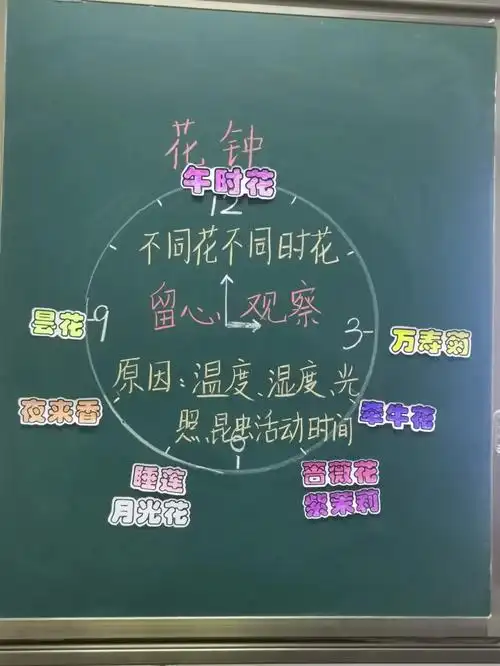 花钟
午时花
12
不同花不同时花
留心观察
昙花
9
3
万寿菊
原因:温度、湿度、光
照、昆虫活动时间
夜来香
牵牛花
6
睡莲
月光花
蔷薇花
紫茉莉